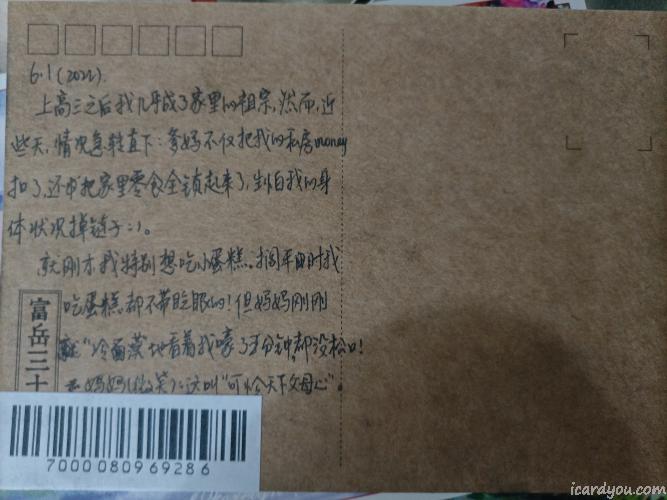 6.1(2022).
上高三之后我几乎成了家里的祖宗,然而,近
些天,情况急转直下:爹妈不仅把我的私房money
扣了,还把家里零食全锁起来了,生怕我的身
体状况掉链子:)。
就刚才我特别想吃小蛋糕。搁平日时我
吃蛋糕都不带眨眼的!但妈妈刚刚
就"冷面漠"地看着我嚎了5分钟,都没松口!
妈妈(微笑):这叫"可怜天下父母心"。
富岳三十
7000080969286
icardyou.com